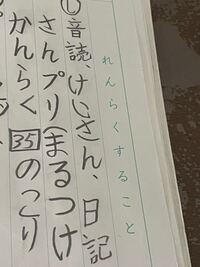 れんらくすること
①音読けいさん、日記
さんプリ(まるつけ
かんらく35のこり